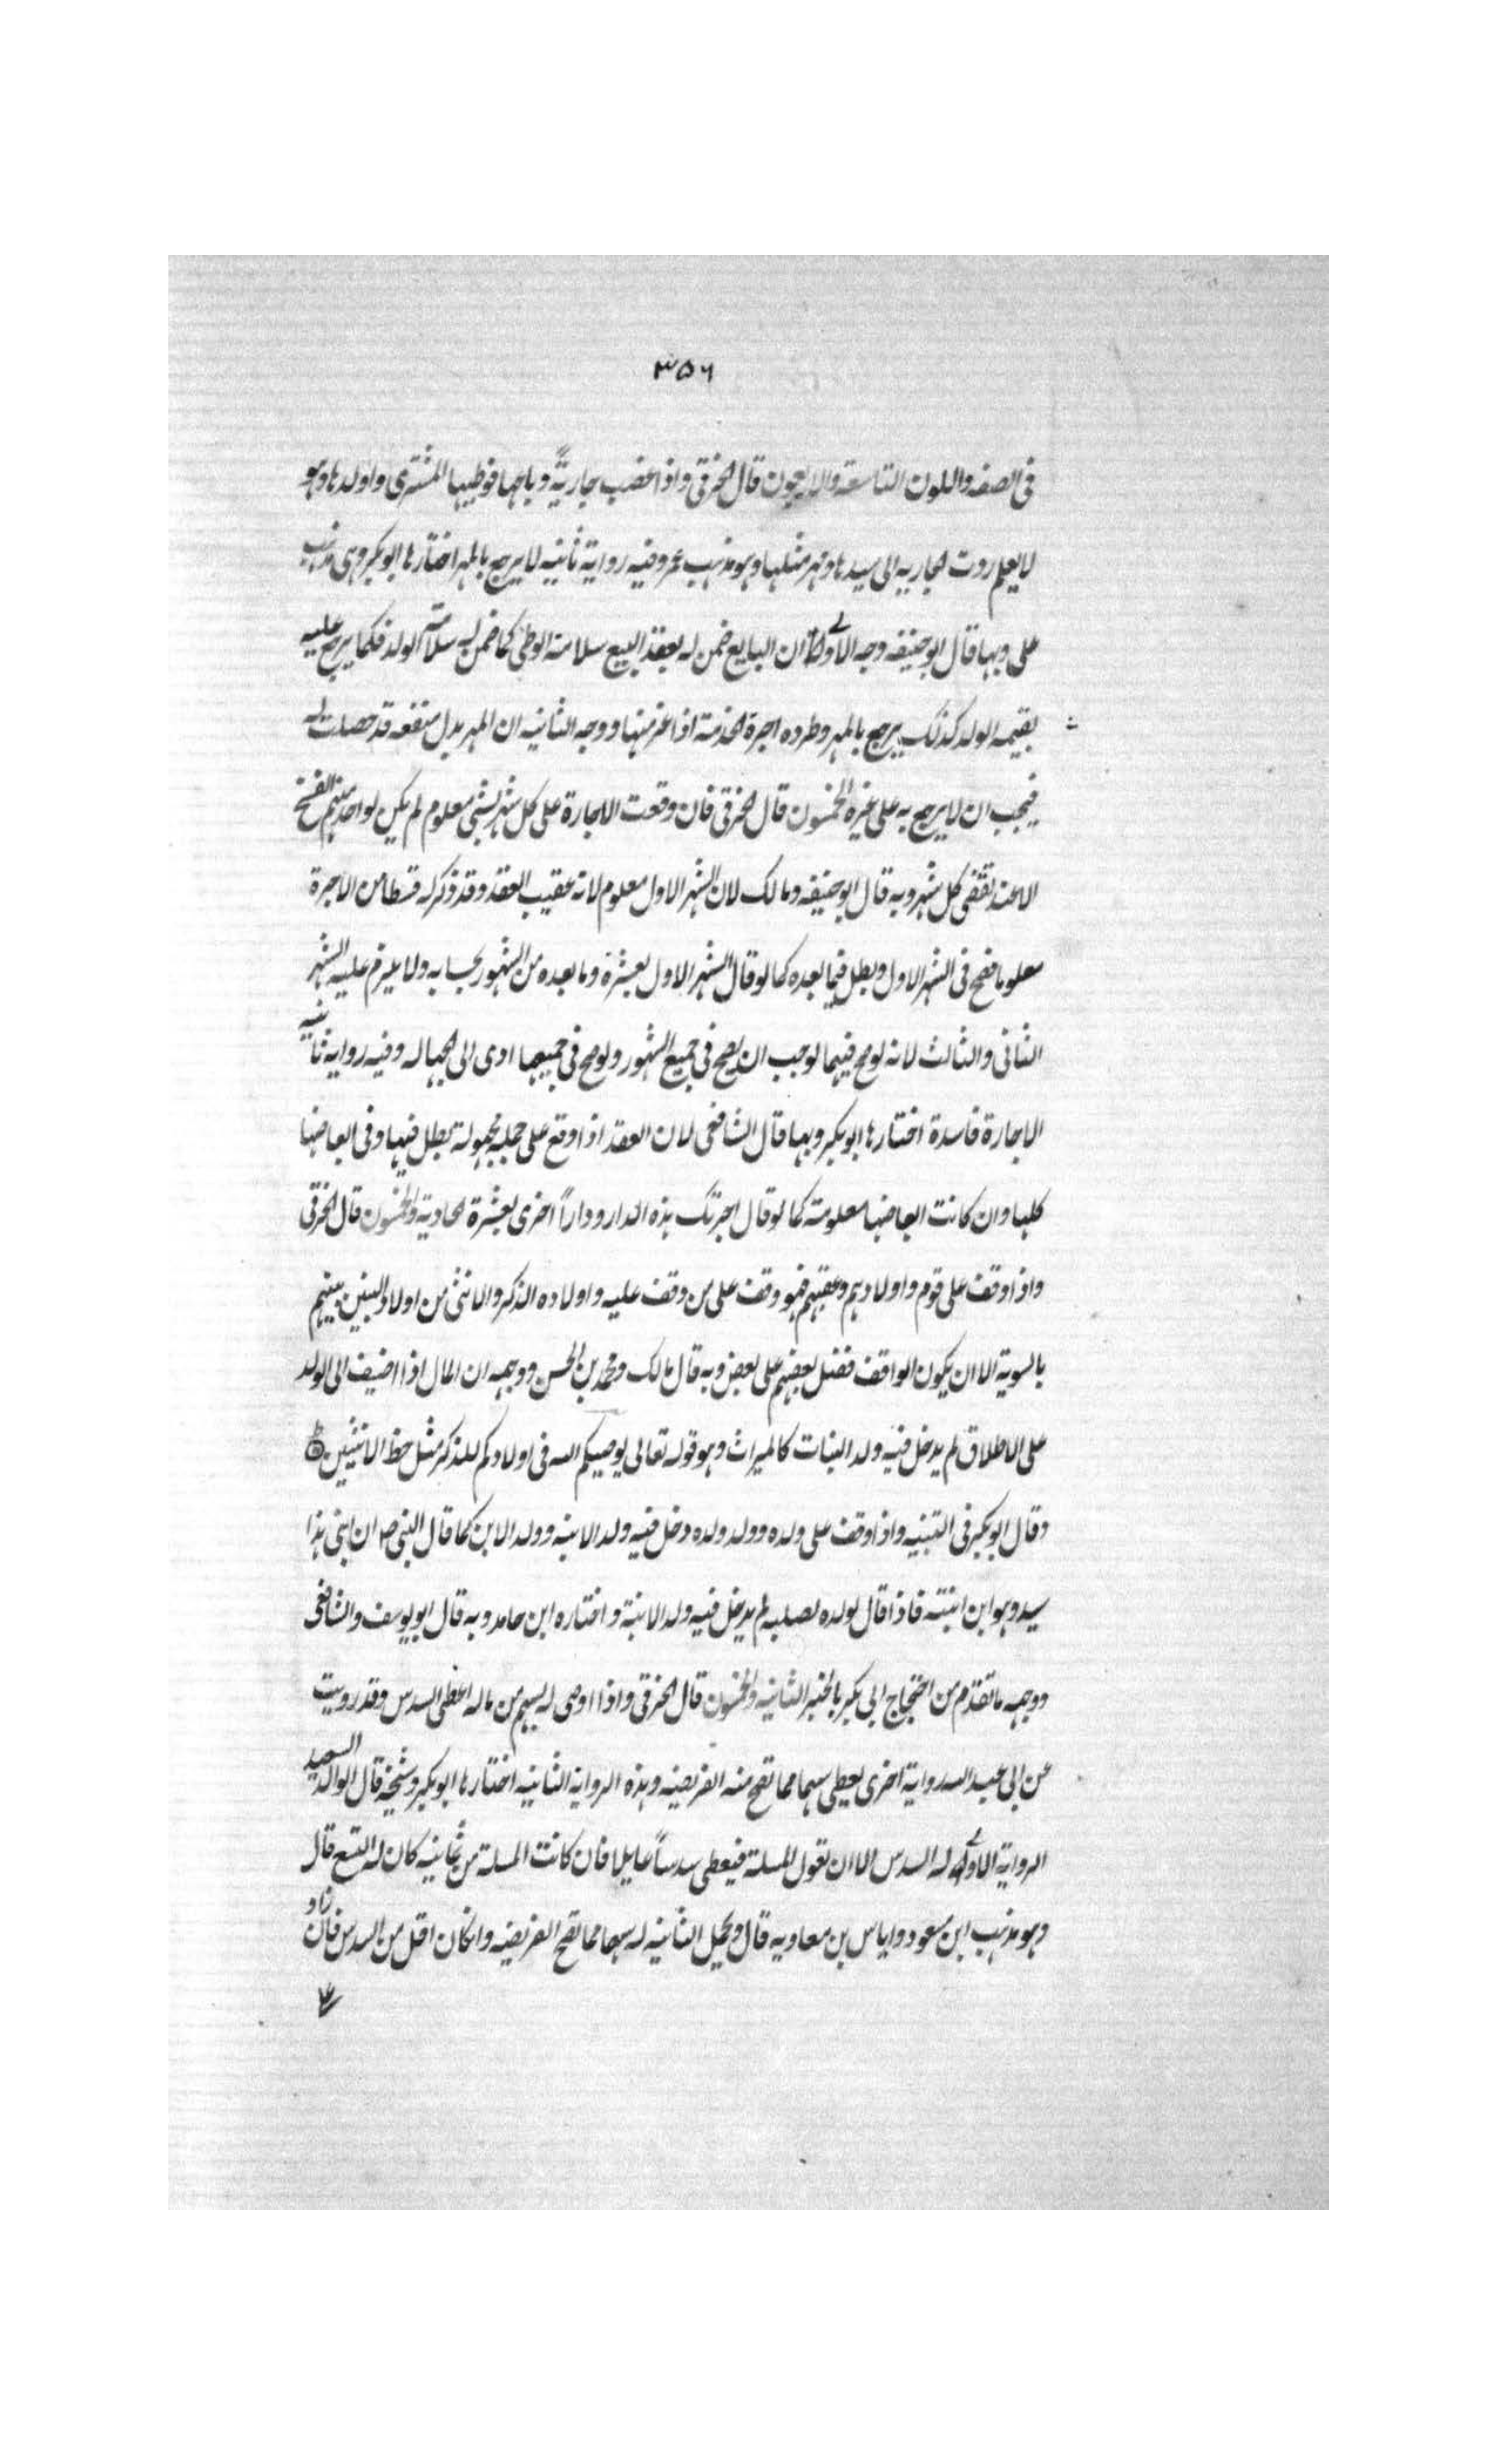 ٣٥٦
فى الصفه واللون التاسعة والاربعون قال الخرقى واذا غضب جاريةً وباعها فوطيها المشترى واولدها وهو
لا يعلم ردت الجاريه الى سيدها ومهر مثلها وهو مذهب عمر وفيه رواية ثانيه لا يرجع بالمهر اختارها ابو بكر وهى مذهب
على وبها قال ابو حنيفه وجه الاولى ان البايع ضمن له بعقد البيع سلامة الوطى كما ضمن له سلامة الولد فكما يرجع عليه
بقيمه الولد كذلك يرجع بالمهر وطرده اجرة الخدمة اذا غرمها ووجه الثانيه ان المهر بدل منفعه قد حصلت له
فيجب ان لا يرجع به على غيره الخمسون قال الخرقى فان وقعت الاجارة على كل شهر بشى معلوم لم يكن لواحد منهم الفسخ
الا عند تقضى كل شهر وبه قال ابو حنيفه ومالك لان الشهر الاول معلوم لانه عقيب العقد وقد ذكر له قسطا من الاجرة
معلوما فصح فى الشهر الاول وبطل فيما بعده كما لو قال الشهر الاول بعشرة وما بعده من الشهور بحسابه ولا يلزم عليه الشهر
الثانى والثالث لانه لو صح فيهما لوجب ان يصح فى جميع الشهور ولو صح فى جميعها ادى الى الجهاله وفيه رواية ثانيه
الاجارة فاسدة اختارها ابو بكر وبها قال الشافعى لان العقد اذا وقع على جملة مجهولة بطل فيها وفى ابعاضها
كلها وان كانت ابعاضها معلومة كما لو قال اجرتك هذه الدار وداراً اخرى بعشرة الحادية والخمسون قال الخرقى
واذا وقف على قوم واولادهم وعقبهم فهو وقف على من وقف عليه واولاده الذكر والانثى من اولاد البنين بينهم
بالسوية الا ان يكون الواقف فضل بعضهم على بعض وبه قال مالك ومحمد بن الحسن ووجهه ان المال اذا اضيف الى الولد
على الاطلاق لم يدخل فيه ولد البنات كالميراث وهو قوله تعالى يوصيكم الله فى اولادكم للذكر مثل حظ الانثيين
وقال ابو بكر فى التنبيه واذا وقف على ولده وولد ولده دخل فيه ولد الابنه وولد الابن كما قال النبى ص ان ابنى هذا
سيد وهو ابن ابنته فاذا قال لولده لصلبه لم يدخل فيه ولد الابنة واختاره ابن حامد وبه قال ابو يوسف والشافعى
ووجهه ما تقدم من احتجاج ابى بكر بالخبر الثانيه والخمسون قال الخرقى واذا اوصى له بسهم من ماله اعطى السدس وقد رويت
عن ابى عبد الله رواية اخرى يعطى سهما مما تصح منه الفريضه وهذه الرواية الثانيه اختارها ابو بكر وشيخه قال الوالد السعيد
الرواية الاولى له السدس الا ان تعول المسلة فيعطى سدساً عايلا فان كانت المسلة من ثمانيه كان له التسع قال
وهو مذهب ابن مسعود واياس بن معاويه قال ويحمل الثانيه له سهما مما تصح الفريضه وانكان اقل من السدس فان زاد